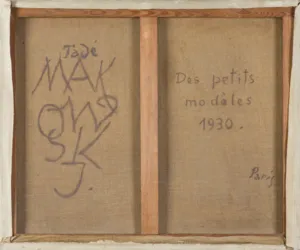 Tadé
MAK
OWS
KI.
Des petits
modèles
1930.
Paris